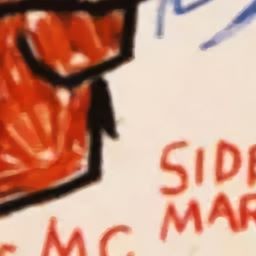 SIDE
MAR
MC